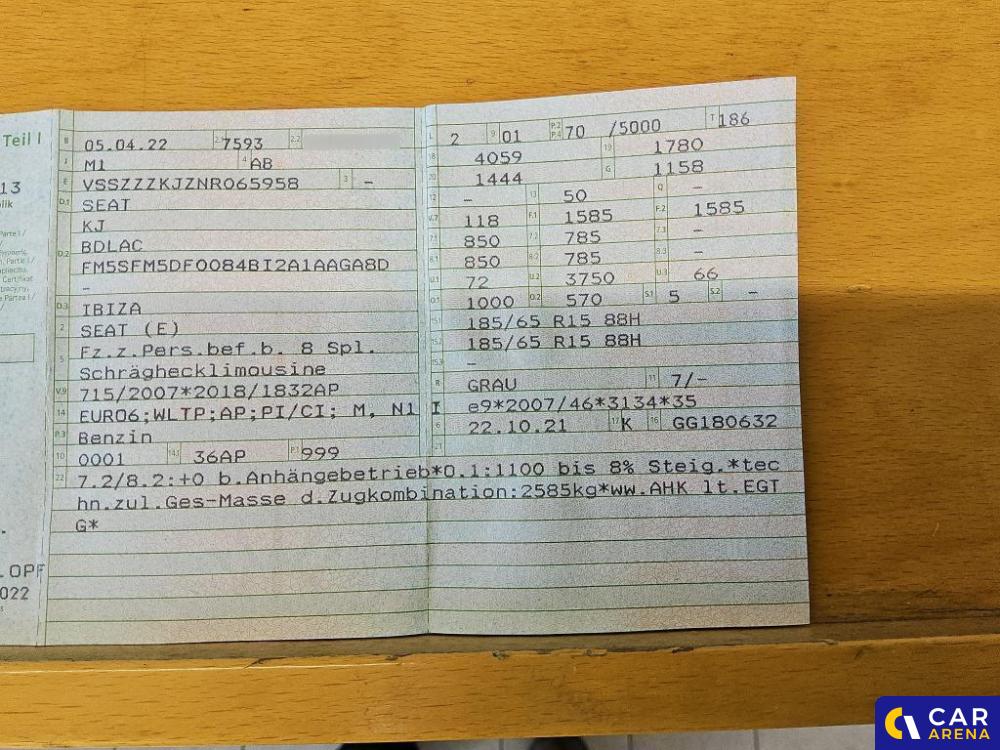 Teil I
13
lik
B 05.04.22 2.1 7593 2.2
J M1 4 AB
E VSSZZZKJZNR065958 3 -
D.1 SEAT
KJ
D.2 BDLAC
FM5SFM5DF0084BI2A1AAGA8D
-
D.3 IBIZA
2 SEAT (E)
5 Fz.z.Pers.bef.b. 8 Spl.
Schräghecklimousine
V.9 715/2007*2018/1832AP
14 EURO6;WLTP;AP;PI/CI; M, N1 I
P.3 Benzin
10 0001 14.1 36AP P.1 999
L 2 9 01 P.2 P.4 70 /5000 T 186
18 4059 19 1780
20 1444 G 1158
12 - 13 50 Q -
V.7 118 F.1 1585 F.2 1585
7.1 850 7.2 785 7.3 -
8.1 850 8.2 785 8.3 -
U.1 72 U.2 3750 U.3 66
O.1 1000 O.2 570 S.1 5 S.2 -
15.1 185/65 R15 88H
15.2 185/65 R15 88H
15.3 -
R GRAU 11 7/-
e9*2007/46*3134*35
6 22.10.21 17 K 16 GG180632
21
22 7.2/8.2:+0 b.Anhängebetrieb*O.1:1100 bis 8% Steig.*tec
hn.zul.Ges-Masse d.Zugkombination:2585kg*ww.AHK lt.EGT
G*
.OPF
022
CAR
ARENA